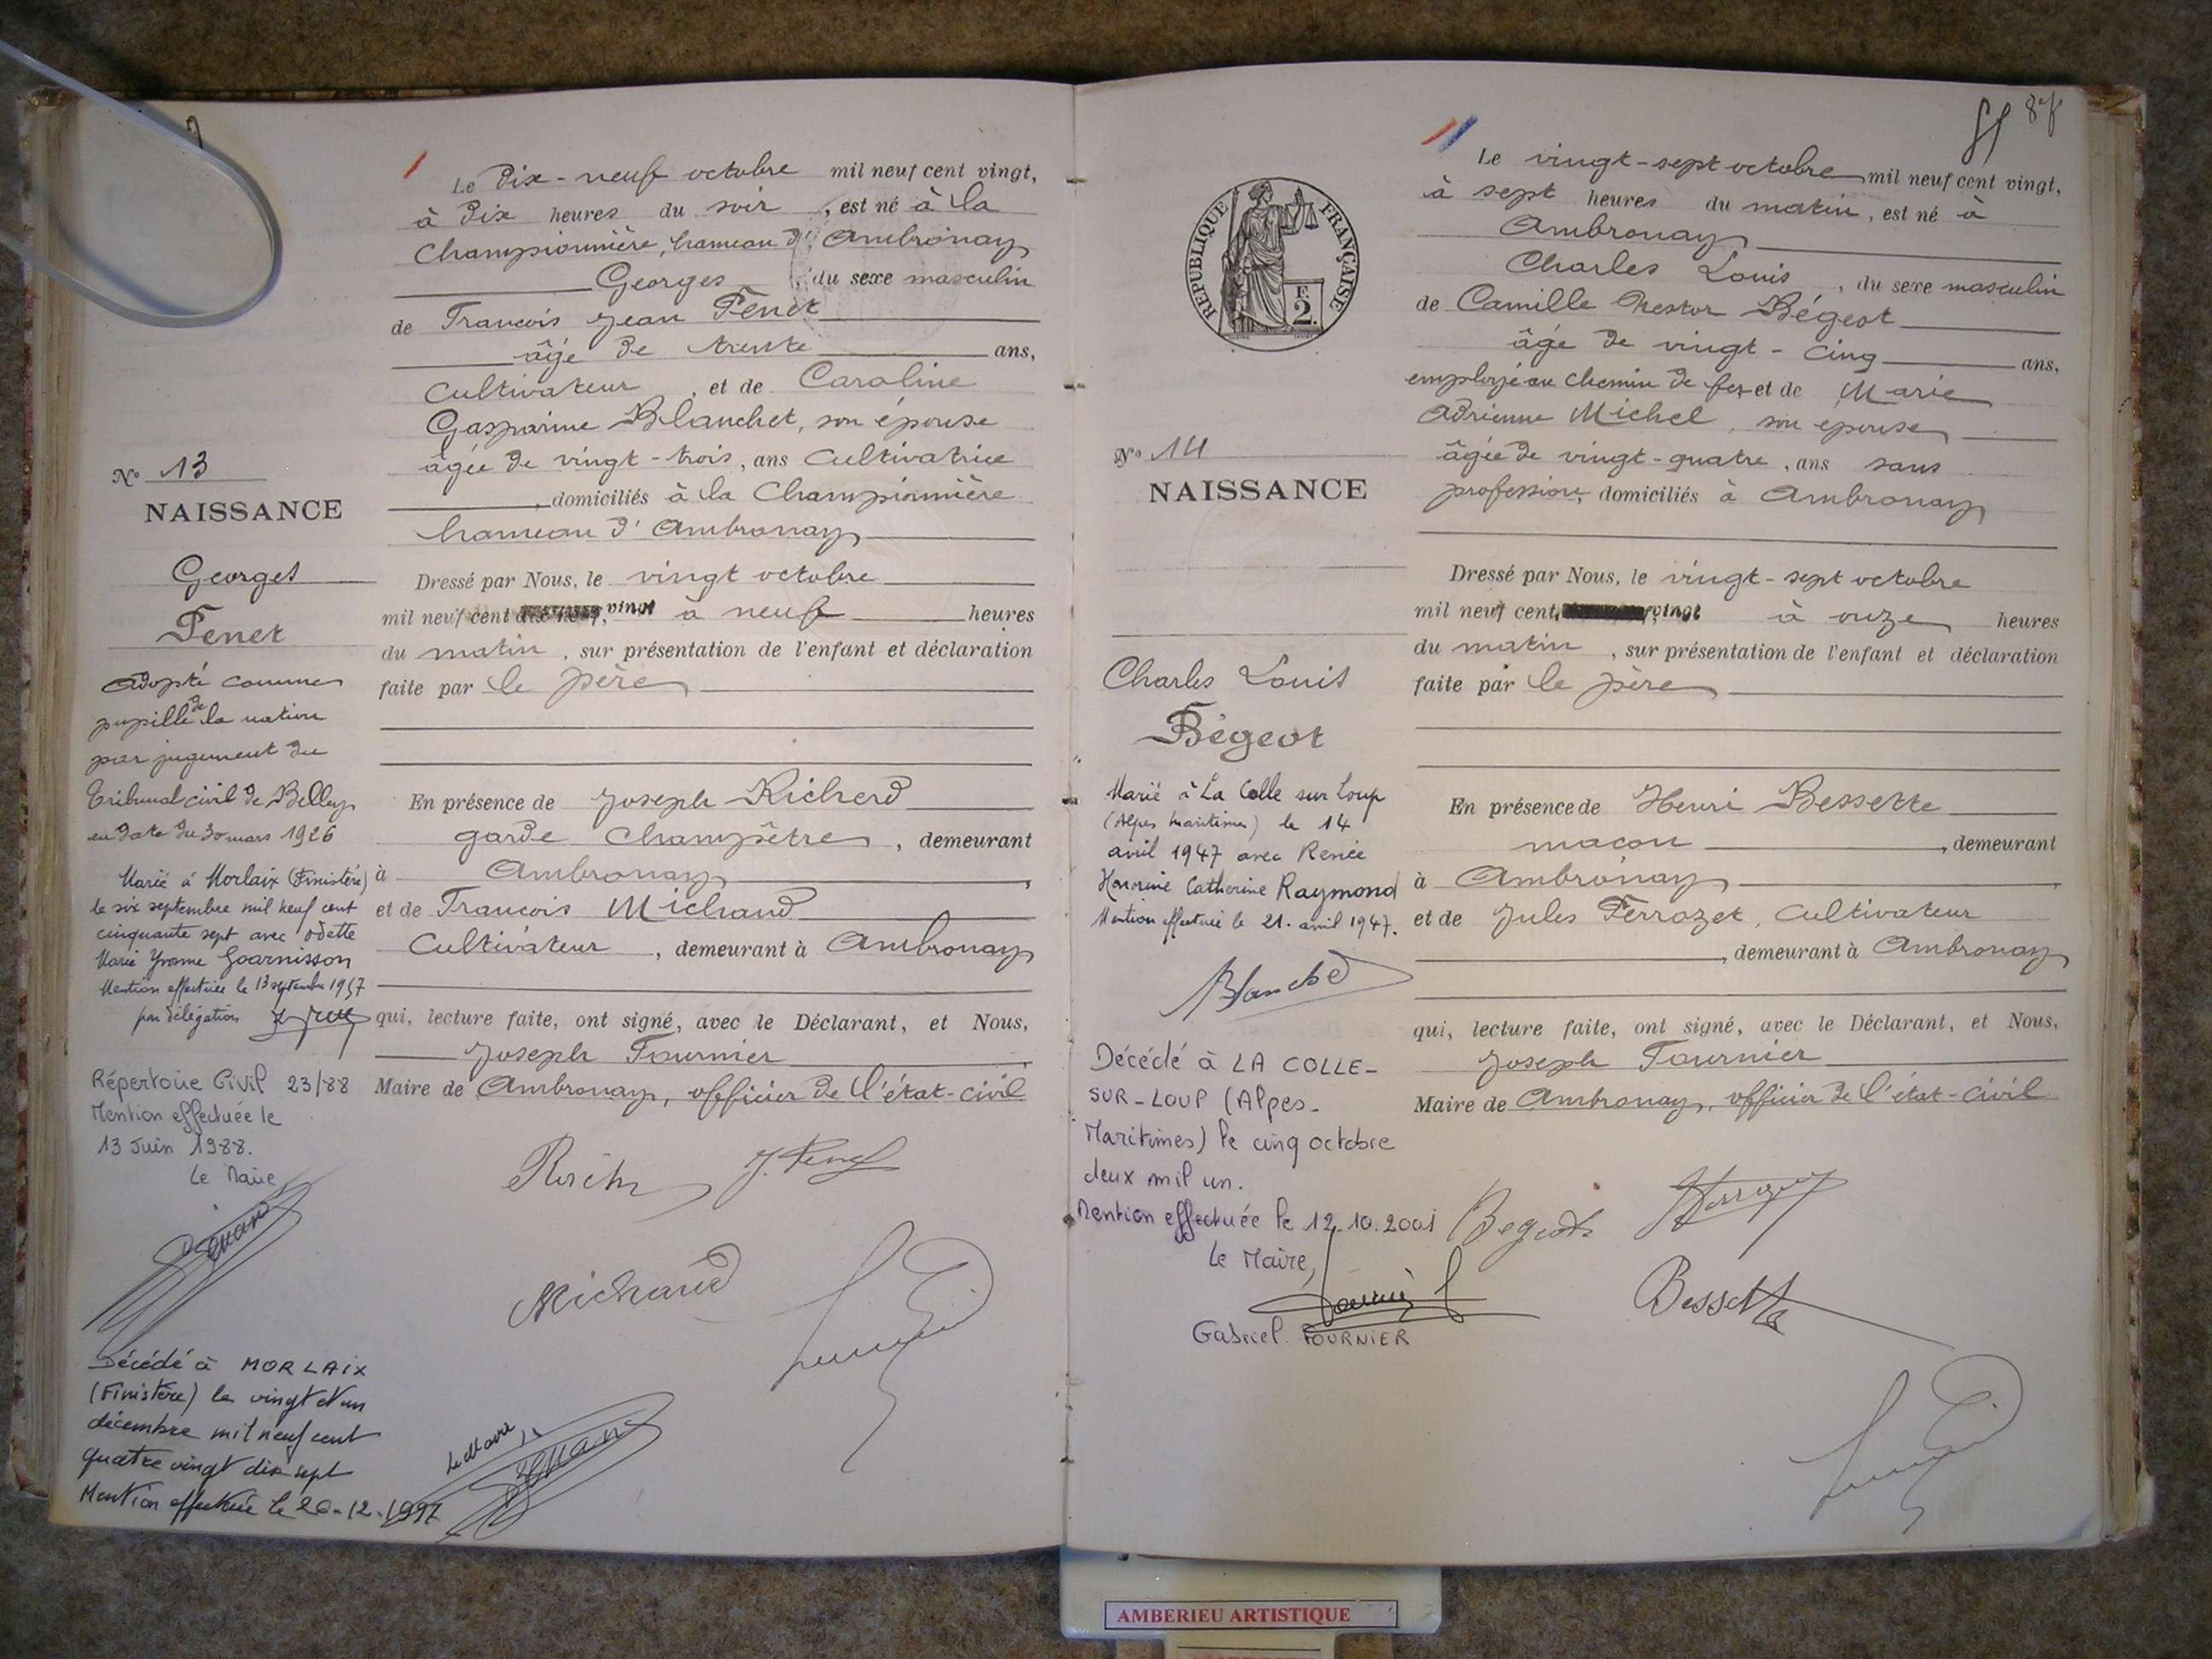 Le Dix-neuf octobre mil neuf cent vingt,
à Dix heures du soir, est né à la
Championnière, hameau d'Ambronay
Georges, du sexe masculin
de François Jean Fenet
âgé de trente ans,
Cultivateur, et de Caroline
Gasparine Blanchet, son épouse
âgée de vingt-trois, ans Cultivatrice
domiciliés à la Championnière
hameau d'Ambronay
Dressé par Nous, le vingt octobre
mil neuf cent vingt à neuf heures
du matin, sur présentation de l'enfant et déclaration
faite par le père
En présence de Joseph Richerd
garde Champêtre, demeurant
à Ambronay
et de François Michaud
Cultivateur, demeurant à Ambronay
qui, lecture faite, ont signé, avec le Déclarant, et Nous,
Joseph Fournier
Maire de Ambronay, officier de l'état-civil
J. Fenet
Michaud
No 13
NAISSANCE
Georges
Fenet
Adopté comme
pupille de la nation
par jugement du
Tribunal civil de Belley
en date du 30 mars 1926
Marié à Morlaix (Finistère)
le six septembre mil neuf cent
cinquante sept avec Odette
Marie Yvonne Goarnisson
Mention effectuée le 13 septembre 1957
par délégation
Répertoire Civil 23/88
Mention effectuée le
13 Juin 1988.
Le Maire
Décédé à MORLAIX
(Finistère) le vingt et un
décembre mil neuf cent
quatre vingt dix sept
Mention effectuée le 26-12-1997
Le Maire,
Le vingt-sept octobre mil neuf cent vingt,
à sept heures du matin, est né à
Ambronay
Charles Louis, du sexe masculin
de Camille Nestor Bégeot
âgé de vingt-cinq ans,
employé au chemin de fer et de Marie
Adrienne Michel, son épouse
âgée de vingt-quatre, ans sans
profession, domiciliés à Ambronay
Dressé par Nous, le vingt-sept octobre
mil neuf cent vingt à onze heures
du matin, sur présentation de l'enfant et déclaration
faite par le père
En présence de Henri Bessette
maçon, demeurant
à Ambronay
et de Jules Ferrozet, Cultivateur
demeurant à Ambronay
qui, lecture faite, ont signé, avec le Déclarant, et Nous,
Joseph Fournier
Maire de Ambronay, officier de l'état-civil
Begeot
Bessette
REPUBLIQUE FRANÇAISE
F.
2.
No 14
NAISSANCE
Charles Louis
Bégeot
Marié à La Colle sur Loup
(Alpes Maritimes) le 14
avril 1947 avec Renée
Honorine Catherine Raymond
Mention effectuée le 21. avril 1947.
Blanchet
Décédé à LA COLLE-
SUR-LOUP (Alpes-
Maritimes) le cinq octobre
deux mil un.
Mention effectuée le 12.10.2001
Le Maire,
Gabriel FOURNIER
AMBERIEU ARTISTIQUE